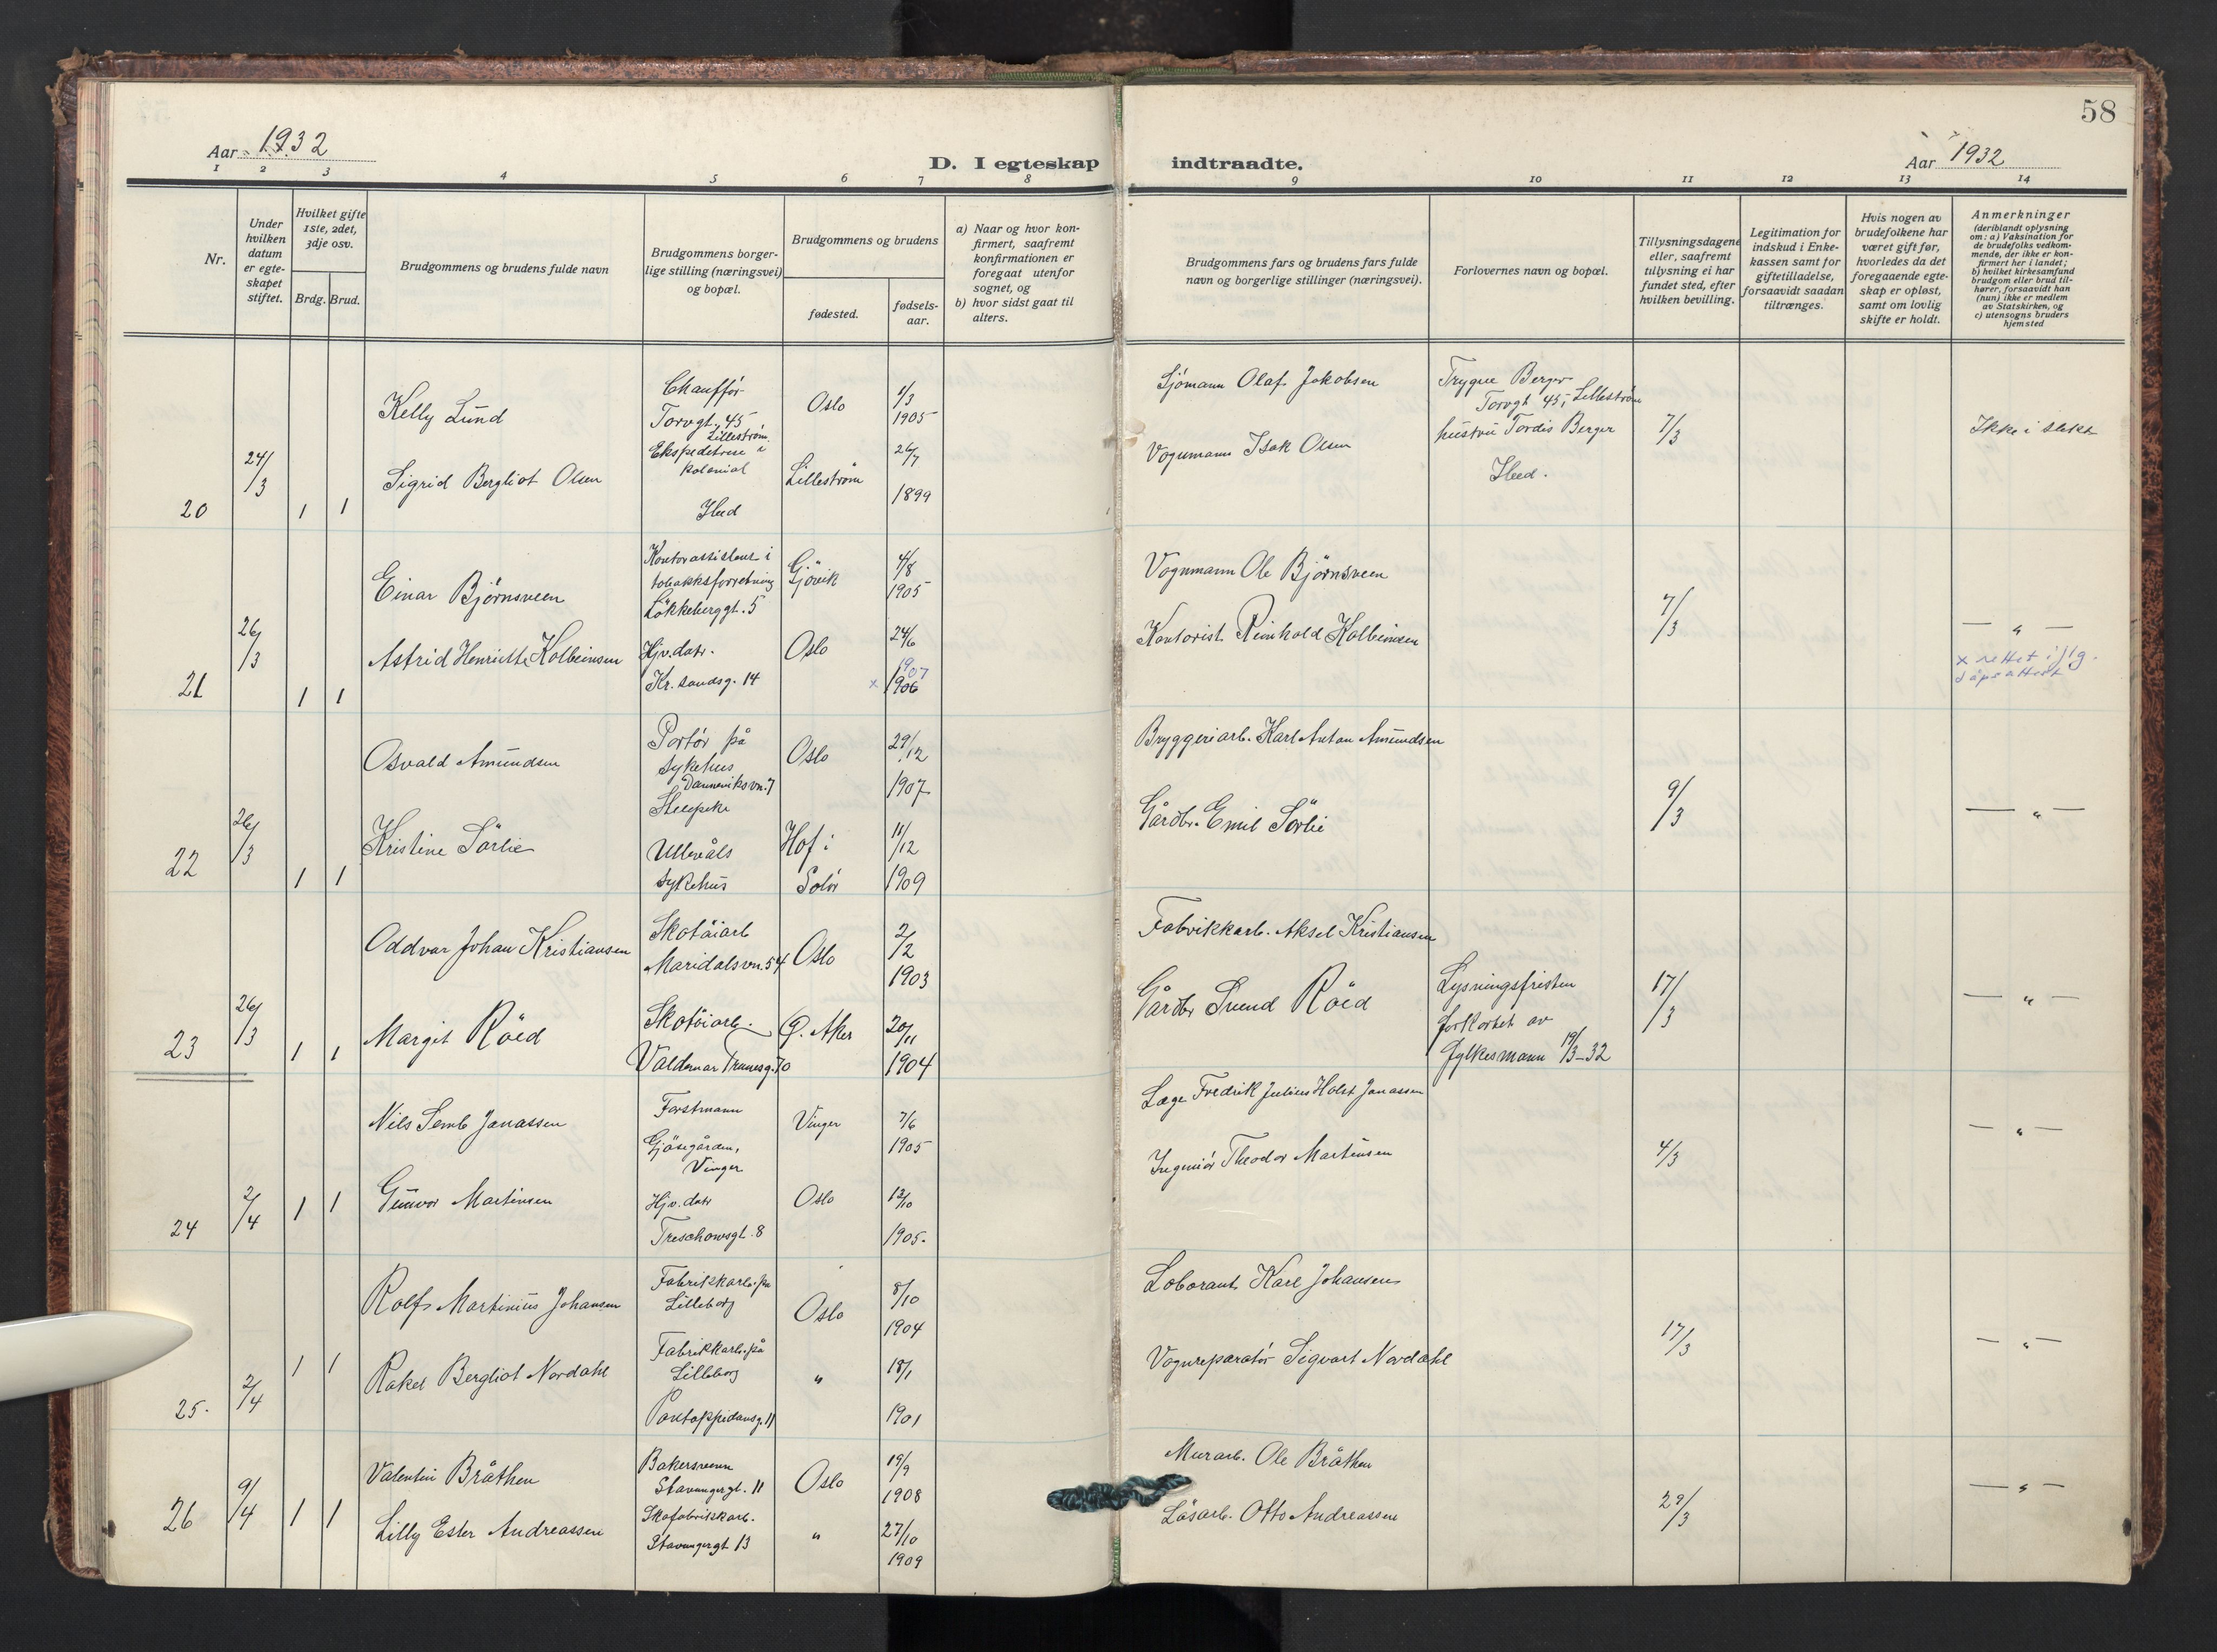 58
Aar 1932
D. I egteskap indtraadte.
Aar 1932
1 2 3 4 5 6 7 8 9 10 11 12 13 14
Nr.
Under hvilken datum er egteskapet stiftet.
Hvilket gifte 1ste, 2det, 3dje osv.
Brdg. Brud.
Brudgommens og brudens fulde navn
Brudgommens borgerlige stilling (næringsvei) og bopæl.
Brudgommens og brudens
fødested.
fødselsaar.
a) Naar og hvor konfirmert, saafremt konfirmationen er foregaat utenfor sognet, og
b) hvor sidst gaat til alters.
Brudgommens fars og brudens fars fulde navn og borgerlige stillinger (næringsvei).
Forlovernes navn og bopæl.
Tillysningsdagene eller, saafremt tillysning ei har fundet sted, efter hvilken bevilling.
Legitimation for indskud i Enkekassen samt for giftetilladelse, forsaavidt saadan tiltrænges.
Hvis nogen av brudefolkene har været gift før, hvorledes da det foregaaende egteskap er opløst, samt om lovlig skifte er holdt.
Anmerkninger (deriblandt oplysning om: a) Vaksination for de brudefolks vedkommende, der ikke er konfirmert her i landet; b) hvilket kirkesamfund brudgom eller brud tilhører, forsaavidt han (nun) ikke er medlem av Statskirken, og c) utensogns bruders hjemsted
20
24/3
1 1
Kelly Lund
Chauffør
Torvgt. 45
Lillestrøm.
Oslo
1/3
1905
Sigrid Bergliot Olsen
Ekspeditrise i
kolonial
Ibid
Lillestrøm
26/7
1899
Sjömann Olaf Jakobsen
Vognmann Isak Olsen
Trygve Berger
Torvgt 45, Lillestrøm
hustru Tordis Berger
Ibid.
7/3
Ikke i slekt
21
26/3
1 1
Einar Björnsveen
Kontorassistent i
tobakksforretning
Lökkeberggt. 5
Gjövik
4/8
1905
Astrid Henriette Kolbeinsen
Hjv. datr.
Kr.sandsg. 14
Oslo
24/6
1907
x 1906
Vognmann Ole Björnsveen
Kontorist Reinhold Kolbeinsen
7/3
— " —
x rettet iflg.
dåpsattest
22
26/3
1 1
Osvald Amundsen
Portör på
sykehus
Danneviksvn. 7
Oslo
29/12
1907
Kristine Sörlie
Ullevåls
sykehus
Hof i
Solör
11/12
1909
Bryggeriarb. Karl Anton Amundsen
Gårdbr. Emil Sörlie
9/3
— " —
23
26/3
1 1
Oddvar Johan Kristiansen
Skotöiarb
Maridalsvn. 54
Oslo
2/2
1903
Margit Röed
Skotöiarb.
Valdemar Thranesg. 70
Ö. Aker
20/11
1904
Fabrikkarb. Aksel Kristiansen
Gårdbr Svend Röed
Lysningsfristen
forkortet av
fylkesmann 19/3-32
17/3
— " —
24
2/4
1 1
Nils Semb Janassen
Forstmann
Gjösegården,
Vinger
Vinger
7/6
1905
Gunvor Martinsen
Hjv. datr
Treschowsgt. 8
Oslo
12/10
1905.
Læge Fredrik Julius Holst Janassen
Ingeniör Theodor Martinsen
4/3
— " —
25.
2/4
1 1
Rolf Martinius Johansen
Fabrikkarb. på
Lilleborg
Oslo
8/10
1904
Rakel Bergliot Nordahl
Fabrikkarb. på
Lilleborg
Pontoppidansg. 11
"
18/1
1901
Laborant Karl Johansen
Vognreparatör Sigvart Nordahl
17/3
— " —
26
9/4
1 1
Valentin Bråthen
Bakersvenn
Stavangergt. 11
Oslo
19/9
1908
Lilly Ester Andreassen
Skofabrikkarb.
Stavangergt 13
"
27/10
1909
Murarb. Ole Bråthen
Lösarb. Otto Andreassen
29/3
— " —